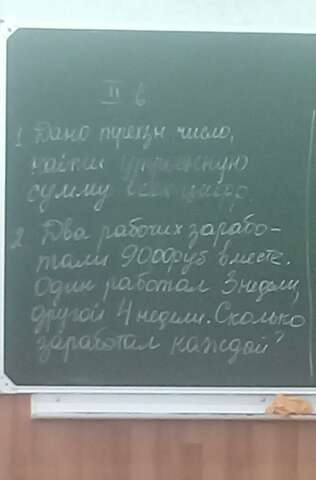 II в
1 Дано трехзн число,
найти утроенную
сумму всех цифр.
2 Два рабочих зарабо-
тали 9000руб вместе.
Один работал 3недели,
другой 4 недели. Сколько
заработал каждой?